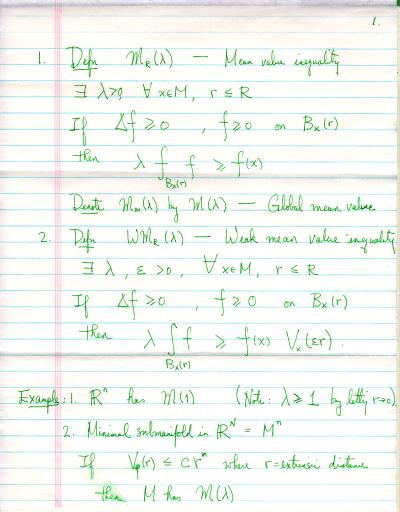 1.
1. Defn M_R(λ) — Mean value inequality
∃ λ>0, ∀ x∈M, r ≤ R
If Δf ≥ 0, f ≥ 0 on B_x(r)
then λ ⨍_{B_x(r)} f ≥ f(x)
Denote M_∞(λ) by M(λ) — Global mean value
2. Defn WM_R(λ) — Weak mean value inequality
∃ λ, ε > 0, ∀ x∈M, r ≤ R
If Δf ≥ 0, f ≥ 0 on B_x(r)
then λ ∫_{B_x(r)} f ≥ f(x) V_x(εr).
Example: 1. R^n has M(1) (Note: λ ≥ 1 by letting r→0).
2. Minimal submanifold in R^N = M^n
If V_p(r) ≤ C r^n where r = extrinsic distance
then M has M(λ)